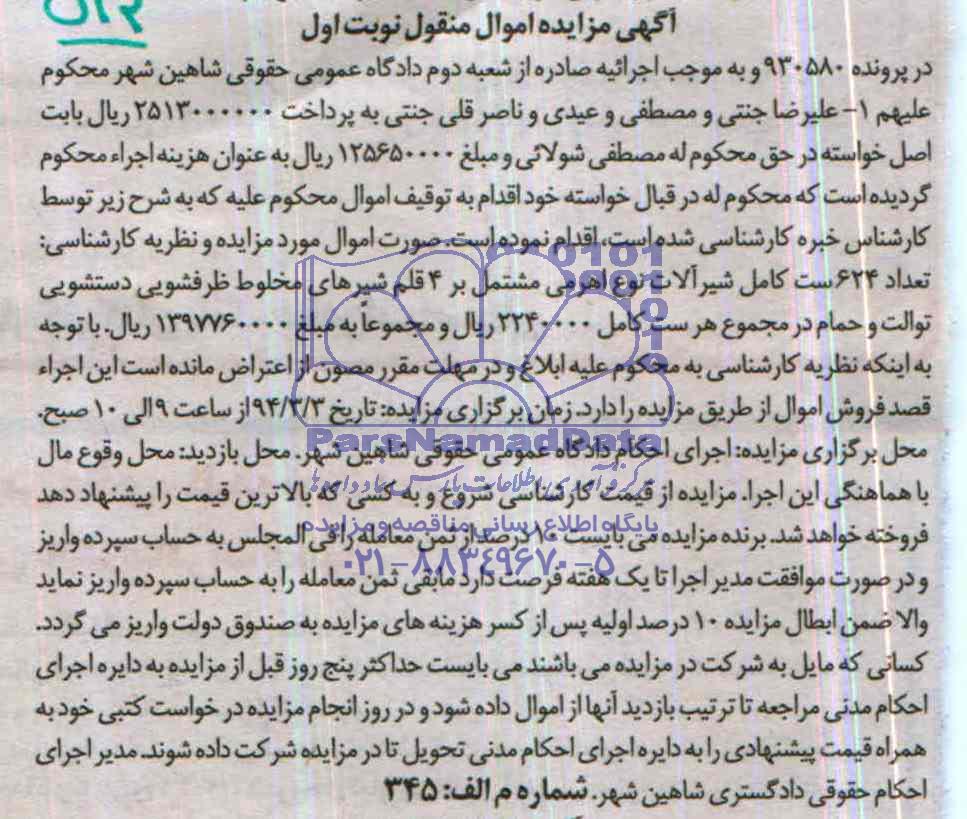 آگهی مزایده اموال منقول نوبت اول
در پرونده ۹۳۰۵۸۰ و به موجب اجرائیه صادره از شعبه دوم دادگاه عمومی حقوقی شاهین شهر محکوم
علیهم ۱- علیرضا جنتی و مصطفی و عیدی و ناصر قلی جنتی به پرداخت ۲۵۱۳۰۰۰۰۰۰ ریال بابت
اصل خواسته در حق محکوم له مصطفی شولائی و مبلغ ۱۲۵۶۵۰۰۰۰ ریال به عنوان هزینه اجراء محکوم
گردیده است که محکوم له در قبال خواسته خود اقدام به توقیف اموال محکوم علیه که به شرح زیر توسط
کارشناس خبره کارشناسی شده است، اقدام نموده است. صورت اموال مورد مزایده و نظریه کارشناسی:
تعداد ۶۲۴ ست کامل شیرآلات نوع اهرمی مشتمل بر ۴ قلم شیرهای مخلوط ظرفشویی دستشویی
توالت و حمام در مجموع هر ست کامل ۲۲۴۰۰۰۰ ریال و مجموعاً به مبلغ ۱۳۹۷۷۶۰۰۰۰ ریال. با توجه
به اینکه نظریه کارشناسی به محکوم علیه ابلاغ و در مهلت مقرر مصون از اعتراض مانده است این اجراء
قصد فروش اموال از طریق مزایده را دارد. زمان برگزاری مزایده: تاریخ ۹۴/۳/۳ از ساعت ۹ الی ۱۰ صبح.
محل برگزاری مزایده: اجرای احکام دادگاه عمومی حقوقی شاهین شهر. محل بازدید: محل وقوع مال
با هماهنگی این اجرا. مزایده از قیمت کارشناسی شروع و به کسی که بالاترین قیمت را پیشنهاد دهد
فروخته خواهد شد. برنده مزایده می بایست ۱۰ درصد از ثمن معامله را فی المجلس به حساب سپرده واریز
و در صورت موافقت مدیر اجرا تا یک هفته فرصت دارد مابقی ثمن معامله را به حساب سپرده واریز نماید
والا ضمن ابطال مزایده ۱۰ درصد اولیه پس از کسر هزینه های مزایده به صندوق دولت واریز می گردد.
کسانی که مایل به شرکت در مزایده می باشند می بایست حداکثر پنج روز قبل از مزایده به دایره اجرای
احکام مدنی مراجعه تا ترتیب بازدید آنها از اموال داده شود و در روز انجام مزایده درخواست کتبی خود به
همراه قیمت پیشنهادی را به دایره اجرای احکام مدنی تحویل تا در مزایده شرکت داده شوند. مدیر اجرای
احکام حقوقی دادگستری شاهین شهر. شماره م الف: ۳۴۵
ParsNamadData
پایگاه اطلاع رسانی مناقصه و مزایده
۰۲۱-۸۸۳۴۹۶۷۰-۵